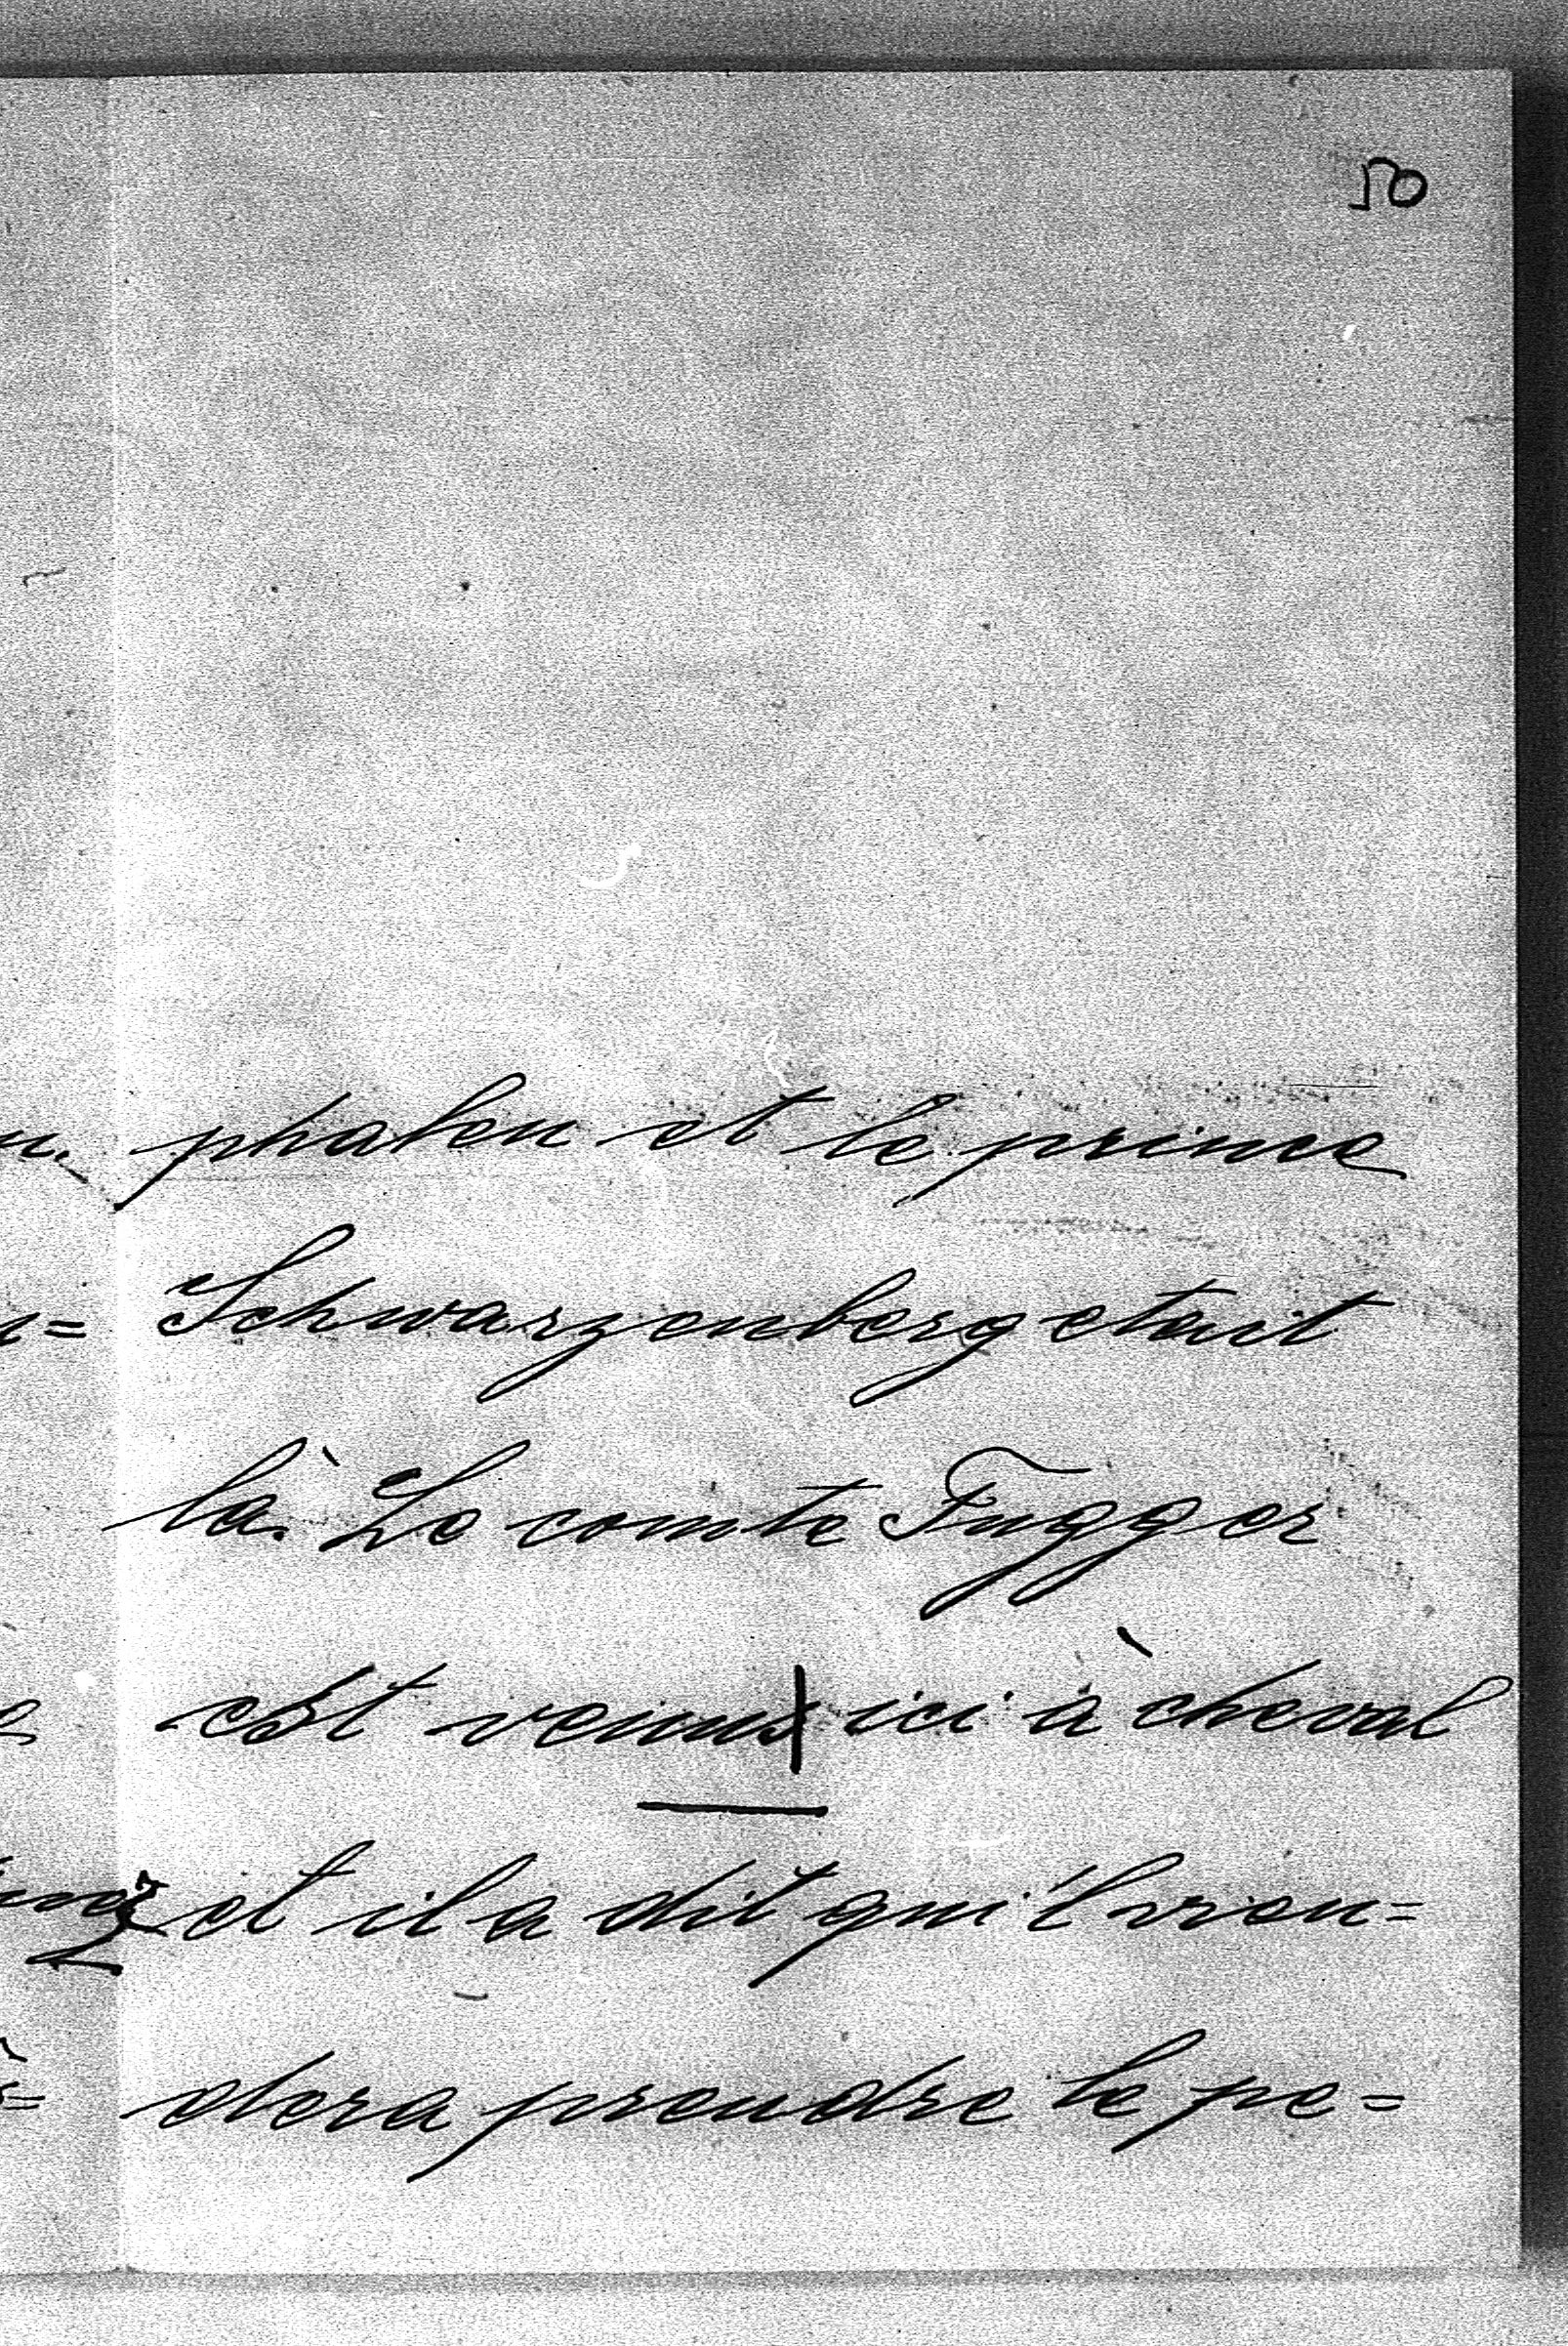 50
phalen et le prince
Schwarzenberg etait
là. Le comte Fugger
est venu ici à cheval
et il a dit qu'il vien=
dera prendre le pe=